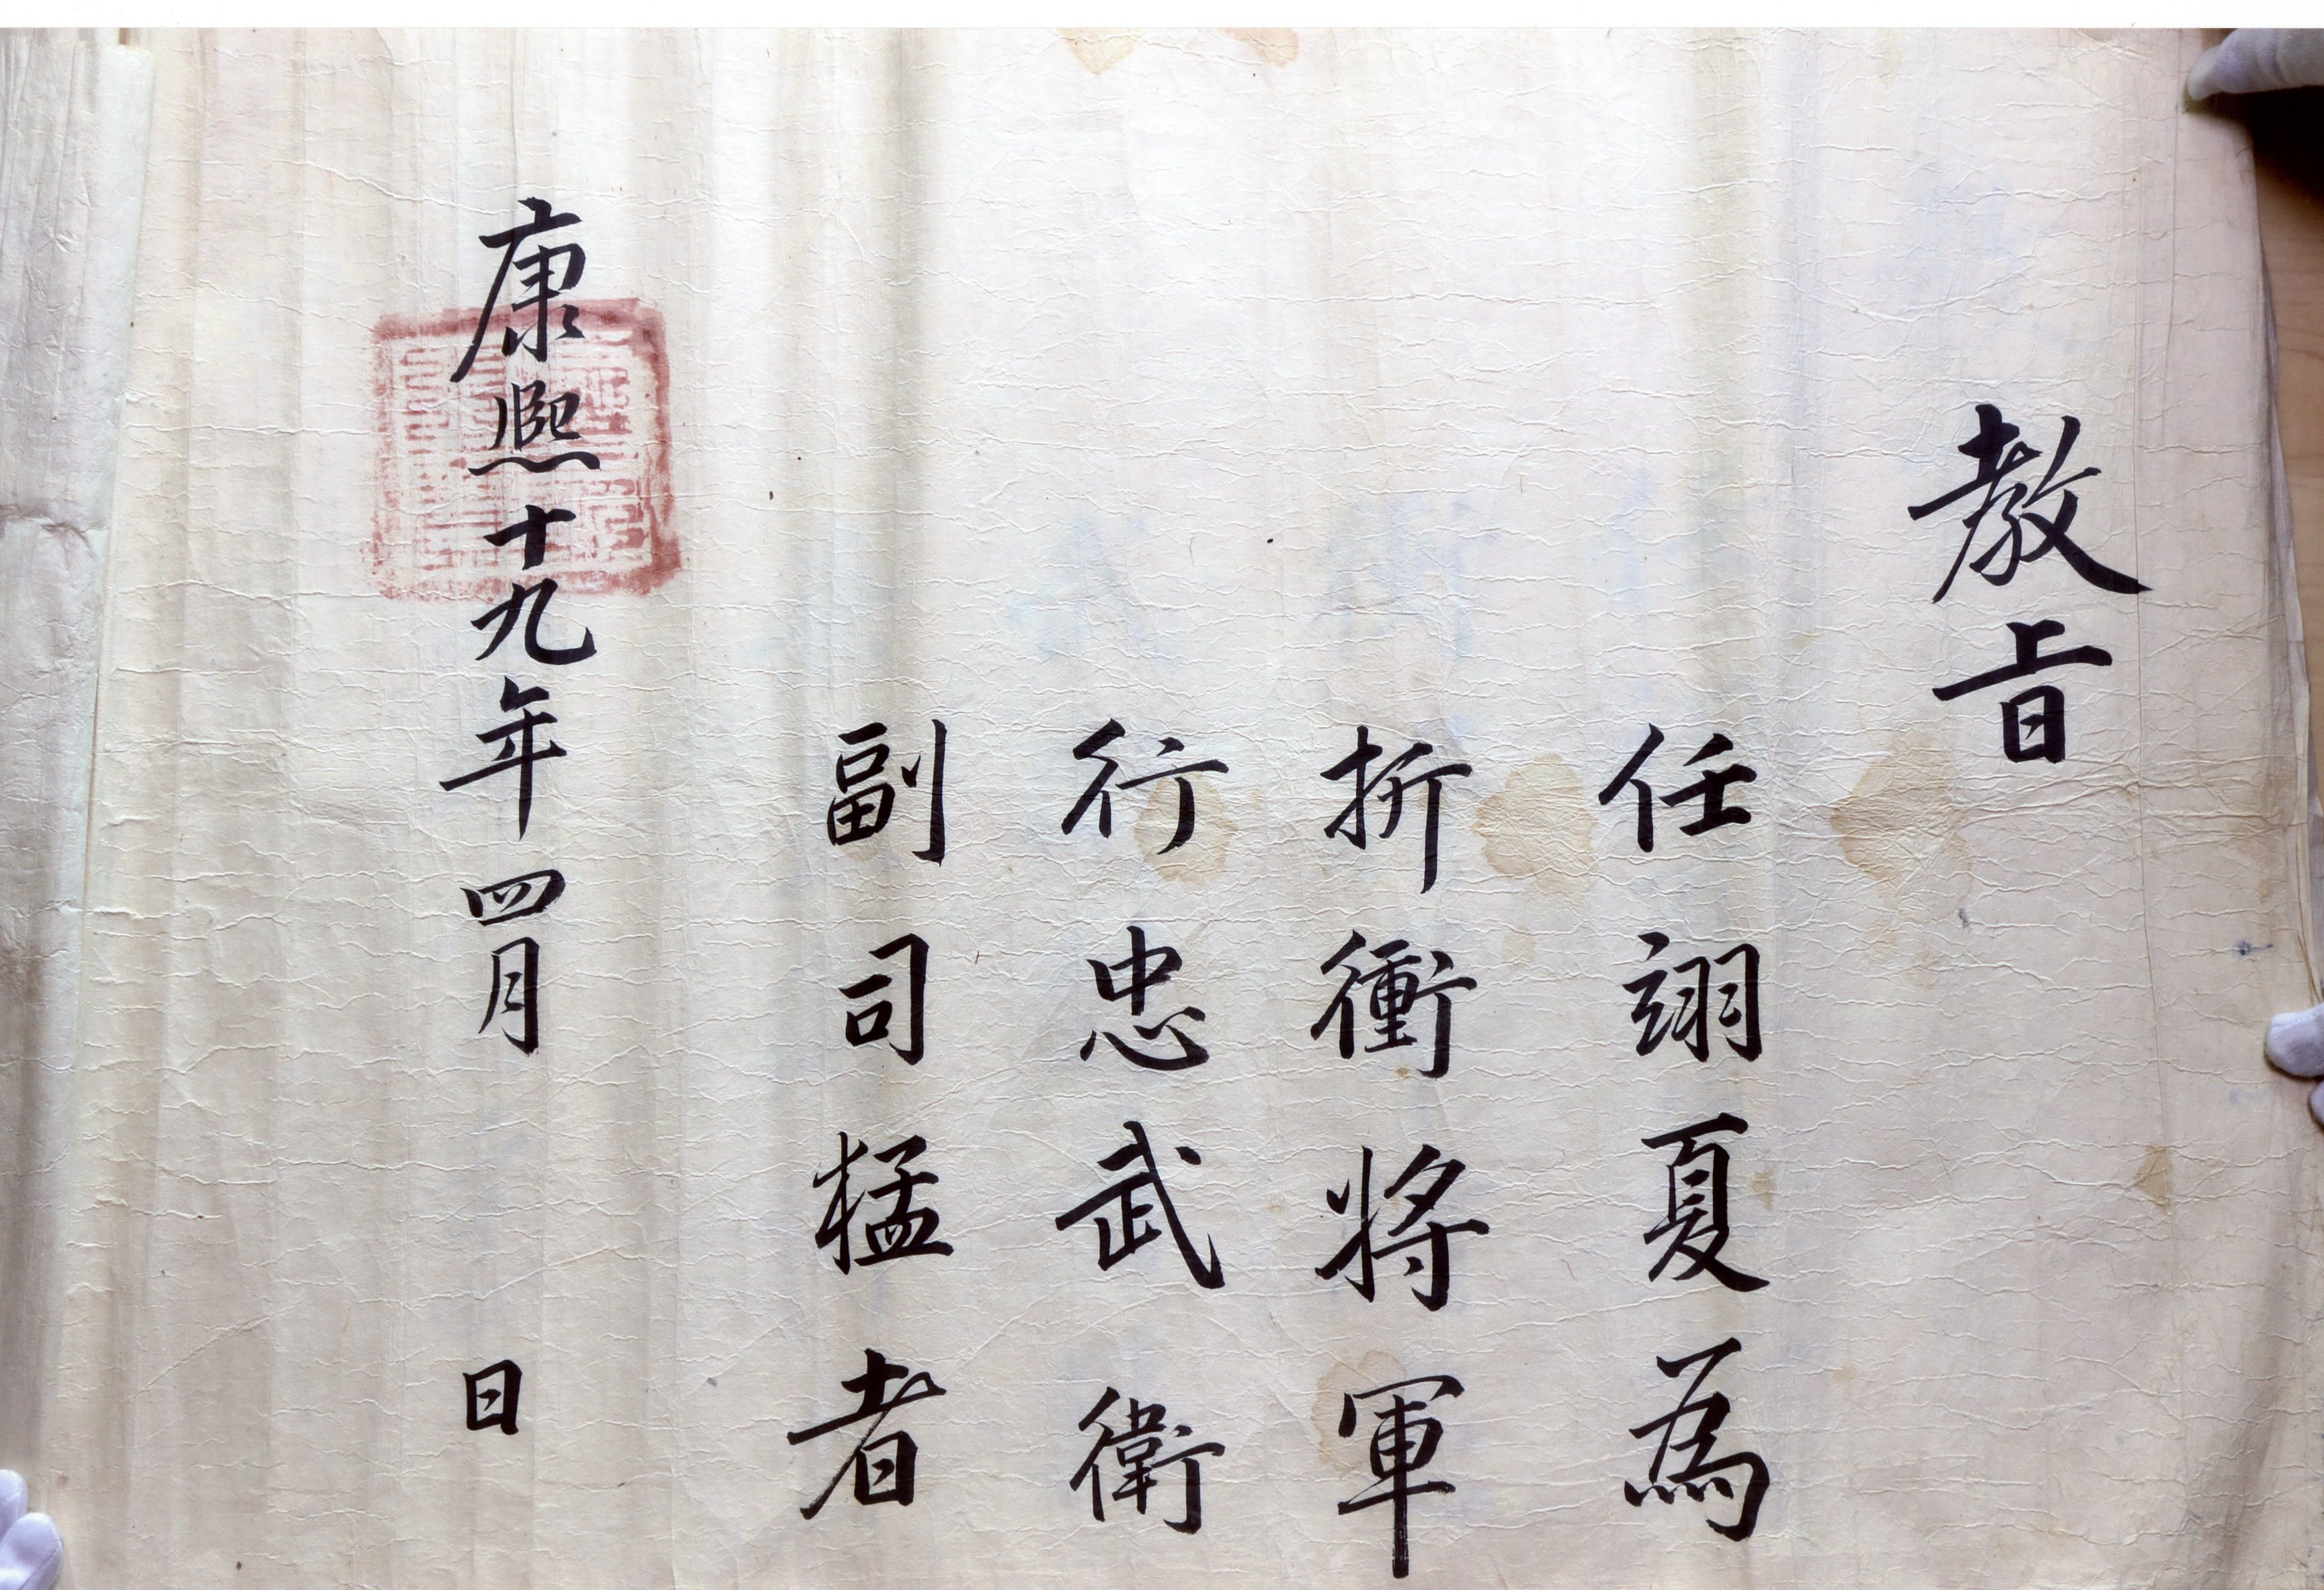 教旨
任翊夏爲
折衝將軍
行忠武衛
副司猛者
康熙十九年四月 日